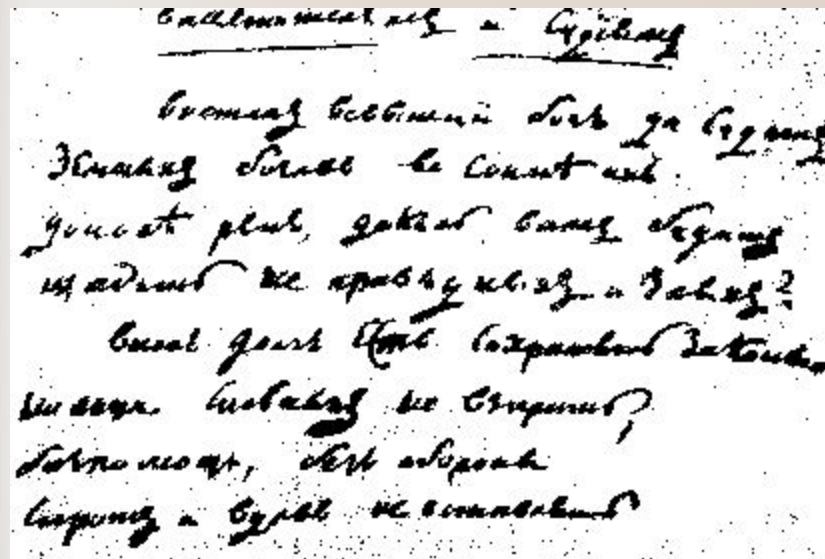 Властителямъ и Судіямъ
Восталъ всевышній богъ да Судитъ
Земныхъ боговъ во Сонмѣ ихъ.
доколѣ рекъ, доколь вамъ будетъ
щадить не праведныхъ и Злыхъ?
Вашъ долгъ Есть Сохранять Законы
на лица Сильныхъ не взирать,
безъ обороны
Сиротъ и вдовъ не оставлять